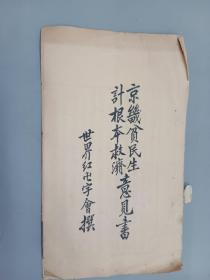 京畿貧民生
計根本救濟意見書
世界紅卍字會撰